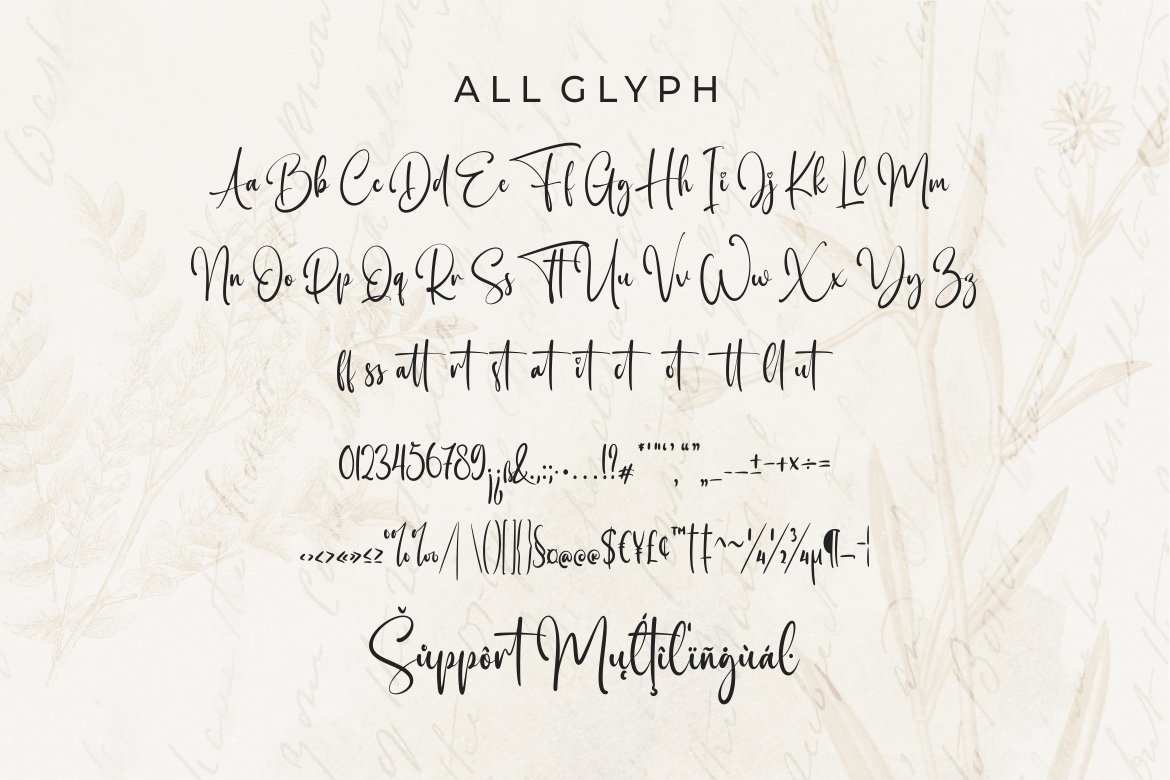 ALL GLYPH
Aa Bb Cc Dd Ee Ff Gg Hh Ii Jj Kk Ll Mm
Nn Oo Pp Qq Rr Ss Tt Uu Vv Ww Xx Yy Zz
ff ss att rt st at it ct ot tt lt ut
0123456789¡¿ß&.,:;·•…!?#*'"‘’‚“”„_-–—±−+×÷=
‹›<>«»≤≥°%‰/|\()[]{}§¤@@@$€¥£¢™†‡^~¼½¾µ¶
Šůppôrt Mųļţîlïñğùáŀ